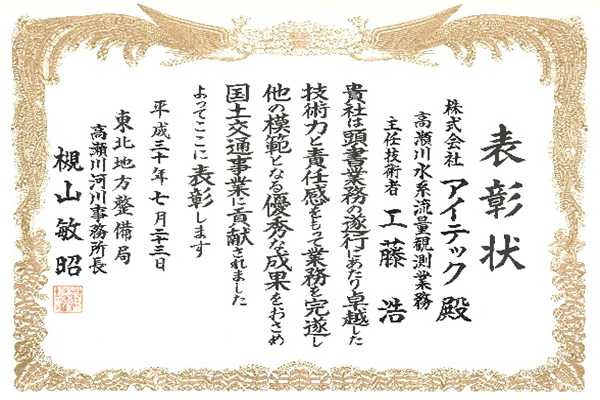 表彰状
株式会社 アイテック 殿
高瀬川水系流量観測業務
主任技術者 工藤 浩
貴社は頭書業務の遂行にあたり卓越した
技術力と責任感をもって業務を完遂し
他の模範となる優秀な成果をおさめ
国土交通事業に貢献されました
よってここに表彰します
平成三十年七月二十三日
東北地方整備局
高瀬川河川事務所長
槻山敏昭